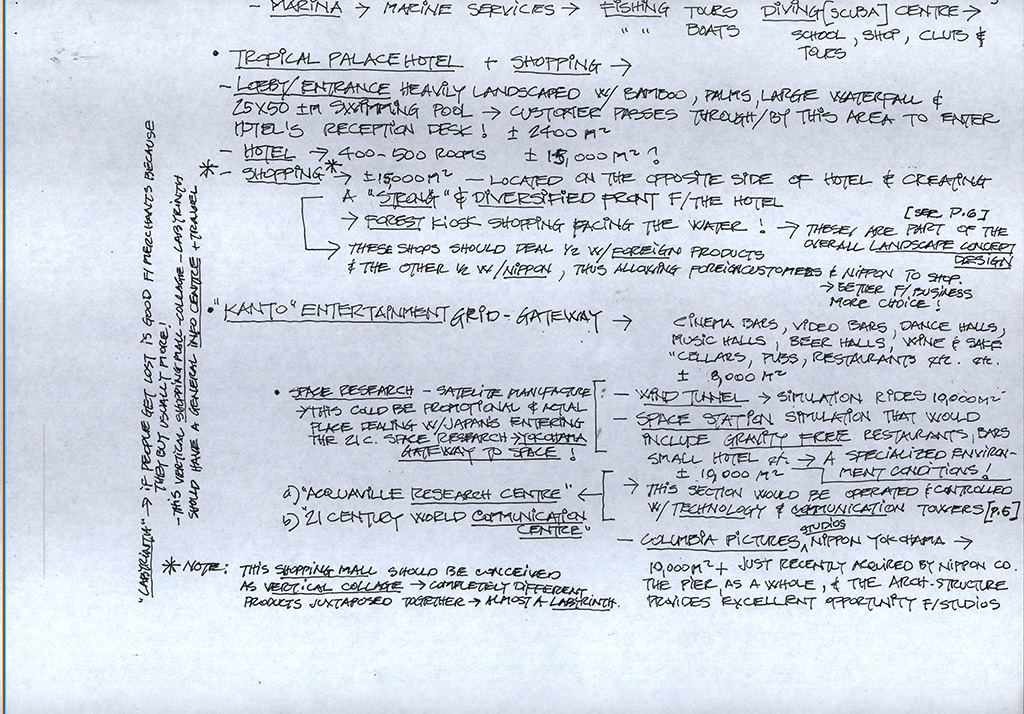 - MARINA → MARINE SERVICES → FISHING TOURS DIVING [SCUBA] CENTRE →
" " BOATS SCHOOL, SHOP, CLUB &
TOURS
• TROPICAL PALACE HOTEL + SHOPPING →
- LOBBY/ENTRANCE HEAVILY LANDSCAPED W/ BAMBOO, PALMS, LARGE WATERFALL &
25X50 ±M SWIMMING POOL → CUSTOMER PASSES THROUGH/BY THIS AREA TO ENTER
HOTEL'S RECEPTION DESK! ± 2400 M²
- HOTEL → 400-500 ROOMS ± 15,000 M²?
*- SHOPPING* → ±15000 M² - LOCATED ON THE OPPOSITE SIDE OF HOTEL & CREATING
A "STRONG" & DIVERSIFIED FRONT F/THE HOTEL
→ FOREST KIOSK SHOPPING FACING THE WATER! → THESE/ ARE PART OF THE
[SEE P.6]
OVERALL LANDSCAPE CONCEPT
DESIGN
→ THESE SHOPS SHOULD DEAL 1/2 W/FOREIGN PRODUCTS
& THE OTHER 1/2 W/NIPPON, THUS ALLOWING FOREIGNCUSTOMERS & NIPPON TO SHOP.
→ BETTER F/BUSINESS
MORE CHOICE!
• "KANTO" ENTERTAINMENT GRID-GATEWAY →
CINEMA BARS, VIDEO BARS, DANCE HALLS,
MUSIC HALLS, BEER HALLS, WINE & SAKE
"CELLARS, PUBS, RESTAURANTS etc. etc.
± 8,000 M²
• SPACE RESEARCH - SATELITE MANUFACTURE
→ THIS COULD BE PROMOTIONAL & ACTUAL
PLACE DEALING W/JAPAN'S ENTERING
THE 21C. SPACE RESEARCH → YOKOHAMA
GATEWAY TO SPACE!
- WIND TUNNEL → SIMULATION RIDES 10,000 M²
- SPACE STATION SIMULATION THAT WOULD
INCLUDE GRAVITY FREE RESTAURANTS, BARS
SMALL HOTEL etc. → A SPECIALIZED ENVIRON-
± 10,000 M² MENT CONDITIONS!
a) "ACQUAVILLE RESEARCH CENTRE" ←
b) "21 CENTURY WORLD COMMUNICATION
CENTRE"
→ THIS SECTION WOULD BE OPERATED & CONTROLLED
W/ TECHNOLOGY & COMMUNICATION TOWERS [P.5]
STUDIOS
- COLUMBIA PICTURES, NIPPON YOKOHAMA →
10,000 M² + JUST RECENTLY ACQUIRED BY NIPPON CO.
THE PIER, AS A WHOLE, & THE ARCH-STRUCTURE
PROVIDES EXCELLENT OPPORTUNITY F/STUDIOS
* NOTE: THIS SHOPPING MALL SHOULD BE CONCEIVED
AS VERTICAL COLLAGE → COMPLETELY DIFFERENT
PRODUCTS JUXTAPOSED TOGETHER → ALMOST A LABYRINTH.
"LABYRINTH" → IF PEOPLE GET LOST IS GOOD F/MERCHANTS BECAUSE
THEY BUY USUALLY MORE!
- THIS VERTICAL SHOPPING MALL-COLLAGE-LABYRINTH
SHOULD HAVE A GENERAL INFO CENTRE + TRAVEL